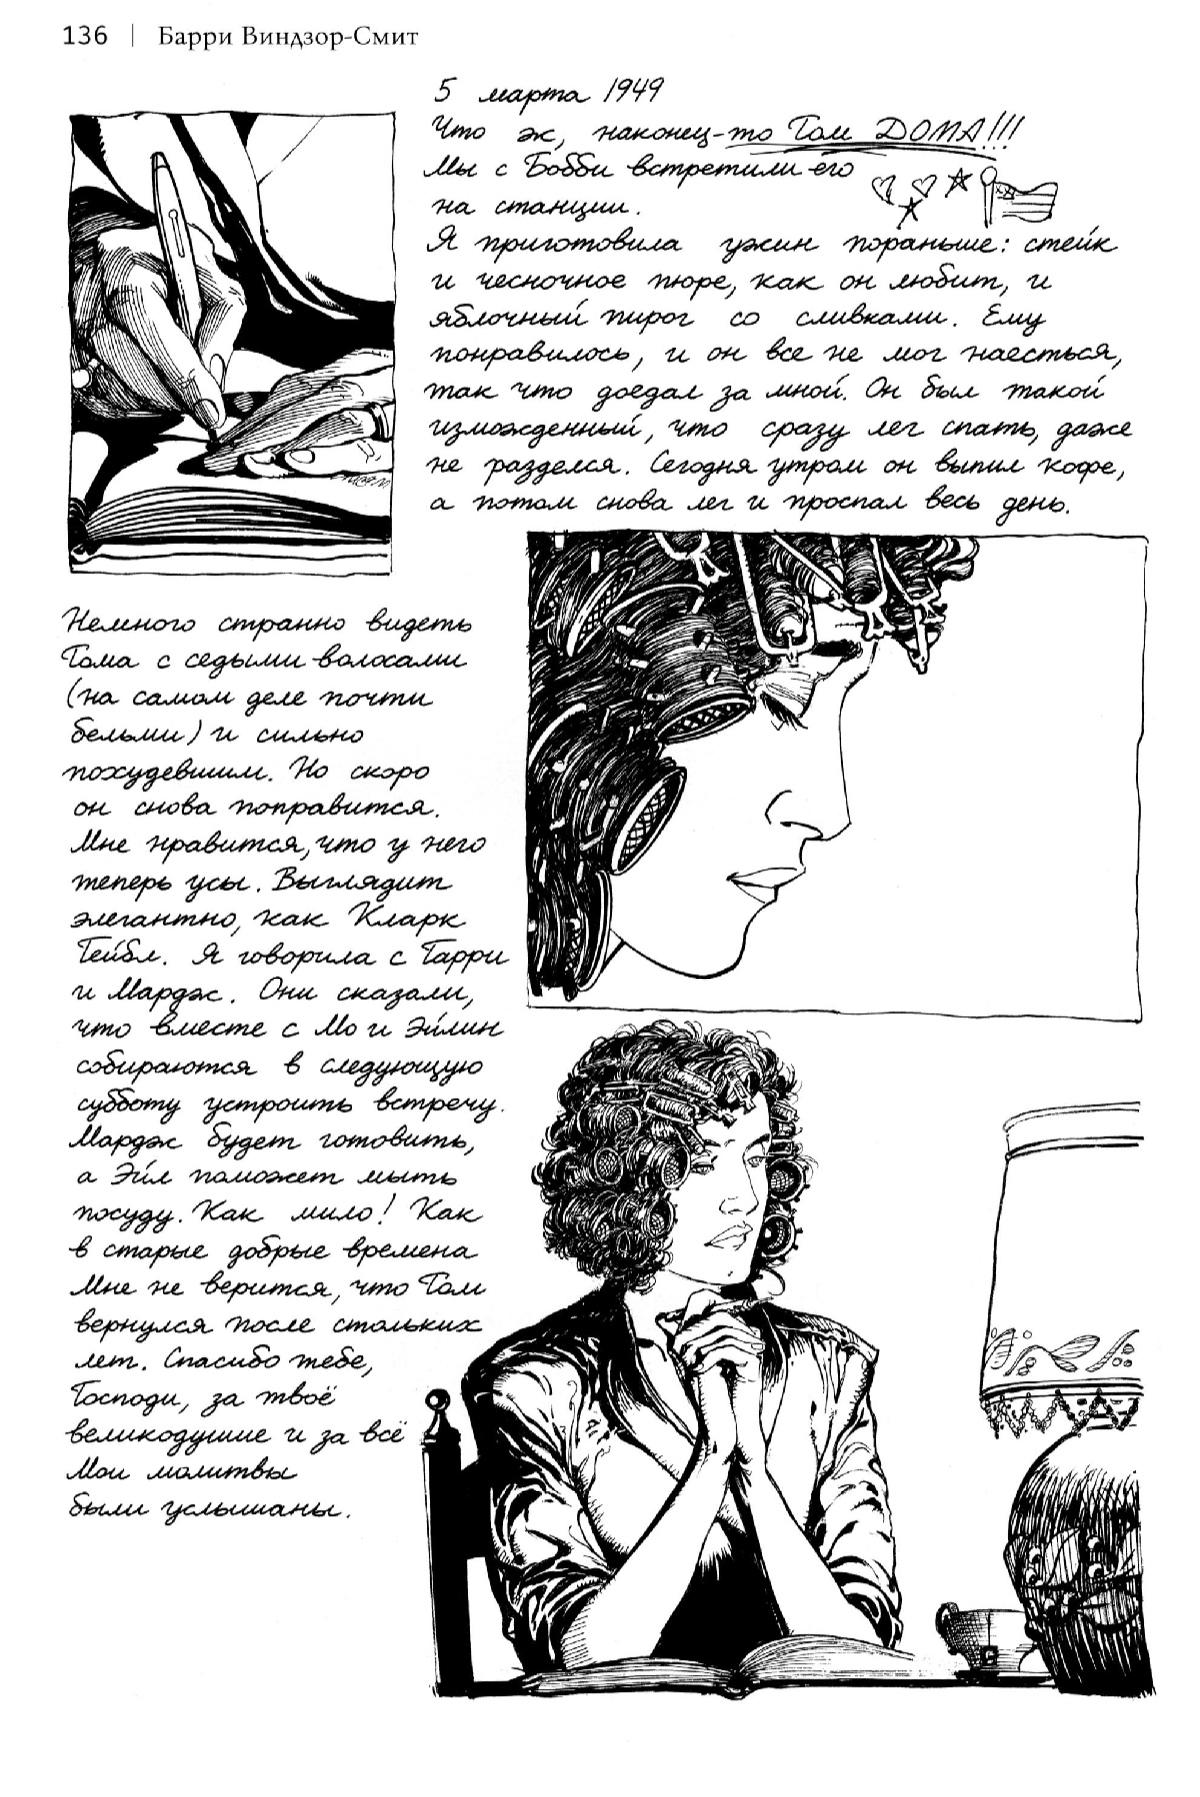 136 | Барри Виндзор-Смит
5 марта 1949
Что ж, наконец-то Том ДОМА!!!
Мы с Бобби встретили его
на станции.
Я приготовила ужин пораньше: стейк
и чесночное пюре, как он любит, и
яблочный пирог со сливками. Ему
понравилось, и он все не мог наесться,
так что доедал за мной. Он был такой
измождённый, что сразу лег спать, даже
не разделся. Сегодня утром он выпил кофе,
а потом снова лег и проспал весь день.
Немного странно видеть
Тома с седыми волосами
(на самом деле почти
белыми) и сильно
похудевшим. Но скоро
он снова поправится.
Мне нравится, что у него
теперь усы. Выглядит
элегантно, как Кларк
Гейбл. Я говорила с Гарри
и Мардж. Они сказали,
что вместе с Мо и Эйлин
собираются в следующую
субботу устроить встречу.
Мардж будет готовить,
а Эйл поможет мыть
посуду. Как мило! Как
в старые добрые времена
Мне не верится, что Том
вернулся после стольких
лет. Спасибо тебе,
Господи, за твоё
великодушие и за всё
Мои молитвы
были услышаны.